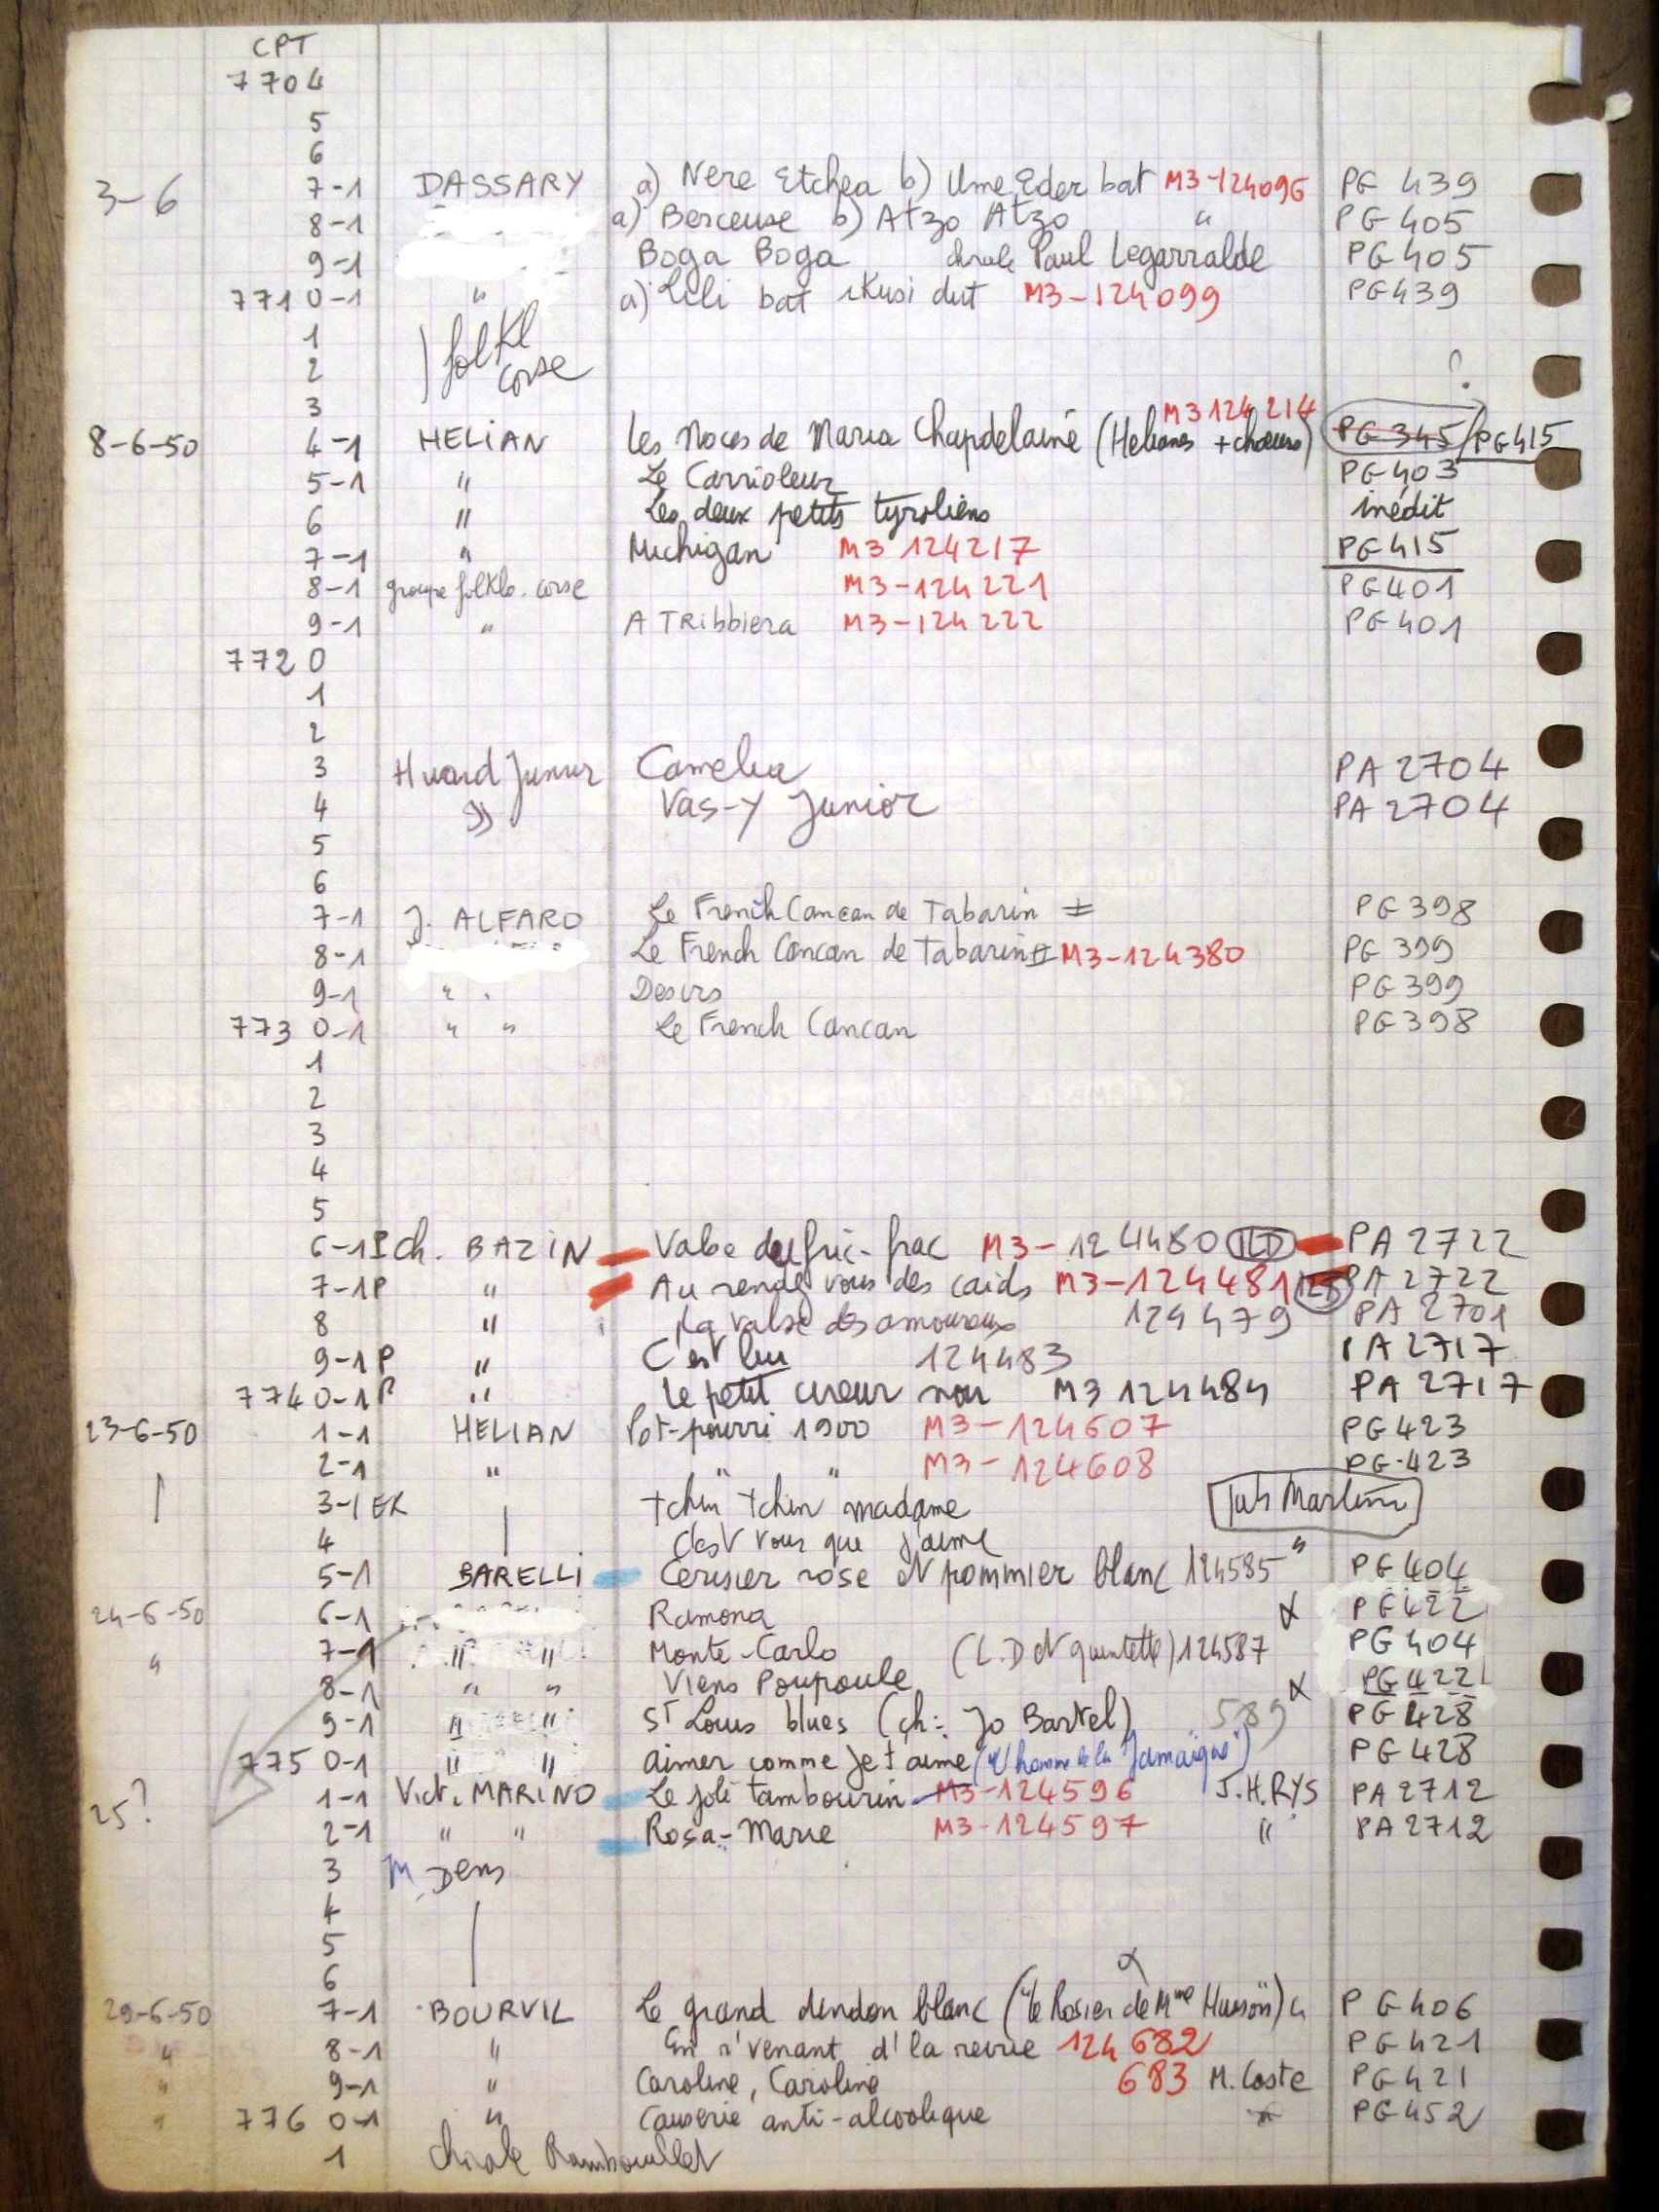 CPT
7704
5
6
3-6 7-1 DASSARY a) Nere Etchea b) Ume Eder bat M3-124096 PG 439
8-1 a) Berceuse b) Atzo Atzo " PG 405
9-1 Boga Boga chorale Paul Legarralde PG 405
7710-1 " a) Lili bat ikusi dut M3-124099 PG439
1 ) folkl
2 corse ?
3 M3 124 214
8-6-50 4-1 HELIAN Les Noces de Maria Chapdelaine (Helianes + choeurs) PG 345/PG415
5-1 " Le Carrioleur PG403
6 " Les deux petits tyroliens inédit
7-1 " Michigan M3 124217 PG415
8-1 groupe folklo. corse M3-124221 PG401
9-1 " A TRibbiera M3-124222 PG401
7720
1
2
3 Huard Junior Camelia PA 2704
4 " Vas-y Junior PA 2704
5
6
7-1 J. ALFARO Le French Cancan de Tabarin I PG 398
8-1 Le French Cancan de Tabarin II M3-124380 PG 399
9-1 " " Desirs PG 399
7730-1 " " Le French Cancan PG 398
1
2
3
4
5
6-1P Ch. BAZIN Valse du fric-frac M3-124480 ILD PA 2722
7-1P " Au rendez vous des caïds M3-124481 ILD PA 2722
8 " La valse des amoureux 124479 PA 2701
9-1P " C'est lui 124483 PA 2717
7740-1P " Le petit cireur noir M3 124484 PA 2717
23-6-50 1-1 HELIAN Pot-pourri 1900 M3-124607 PG423
2-1 " " " M3-124608 PG-423
3-1 EX tchin tchin madame Pub Martini
4 C'est vous que j'aime "
5-1 BARELLI Cerisier rose et pommier blanc 124585 PG404
24-6-50 6-1 Ramona α PG422
" 7-1 " " Monte-Carlo (L.D et quintette) 124587 PG404
8-1 " " Viens Poupoule α PG422
9-1 " " St Louis blues (ch: Jo Bartel) 589 PG428
7750-1 " " aimer comme je t'aime ("L'homme de la Jamaïque") PG 428
25? 1-1 Vict. MARINO Le joli tambourin M3-124596 J.H.RYS PA 2712
2-1 " " Rosa-Marie M3-124597 " PA 2712
3 M. Dens
4
5
6 α
29-6-50 7-1 BOURVIL Le grand dindon blanc ("le Rosier de Mme Husson") PG406
" 8-1 " En r'venant d'la revue 124 682 PG421
" 9-1 " Caroline, Caroline 683 M. Coste PG421
" 7760-1 " Causerie anti-alcoolique PG452
1 chorale Rambouillet